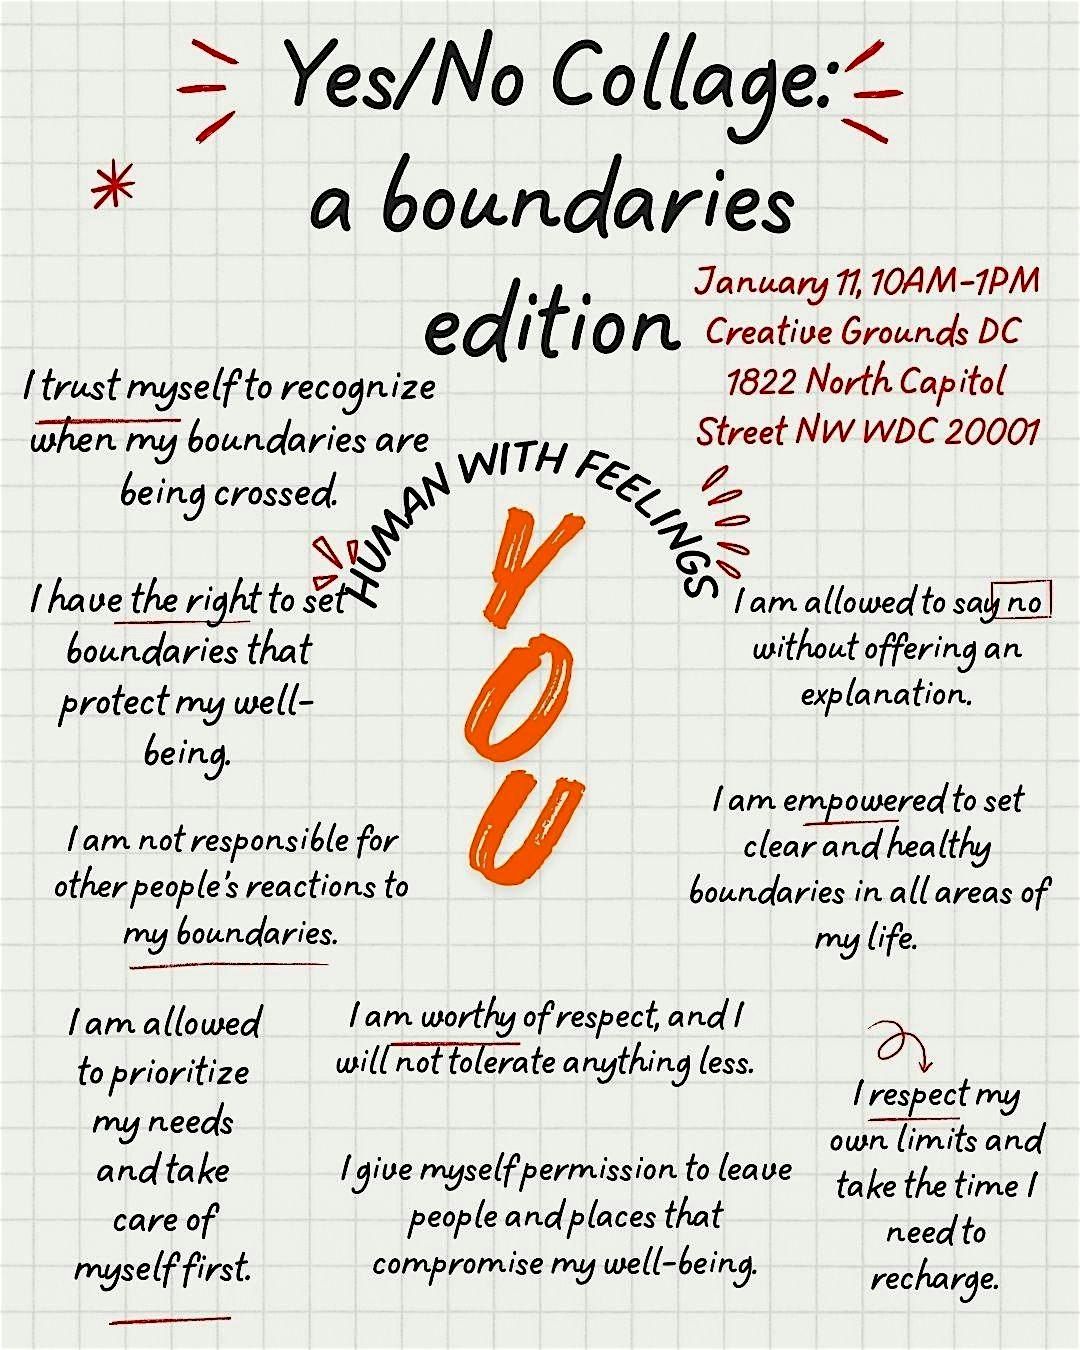 Yes/No Collage:
a boundaries
edition
January 11, 10AM-1PM
Creative Grounds DC
1822 North Capitol
Street NW WDC 20001
I trust myself to recognize
when my boundaries are
being crossed.
HUMAN WITH FEELINGS
YOU
I have the right to set
boundaries that
protect my well-
being.
I am allowed to say no
without offering an
explanation.
I am not responsible for
other people's reactions to
my boundaries.
I am empowered to set
clear and healthy
boundaries in all areas of
my life.
I am allowed
to prioritize
my needs
and take
care of
myself first.
I am worthy of respect, and I
will not tolerate anything less.
I give myself permission to leave
people and places that
compromise my well-being.
I respect my
own limits and
take the time I
need to
recharge.